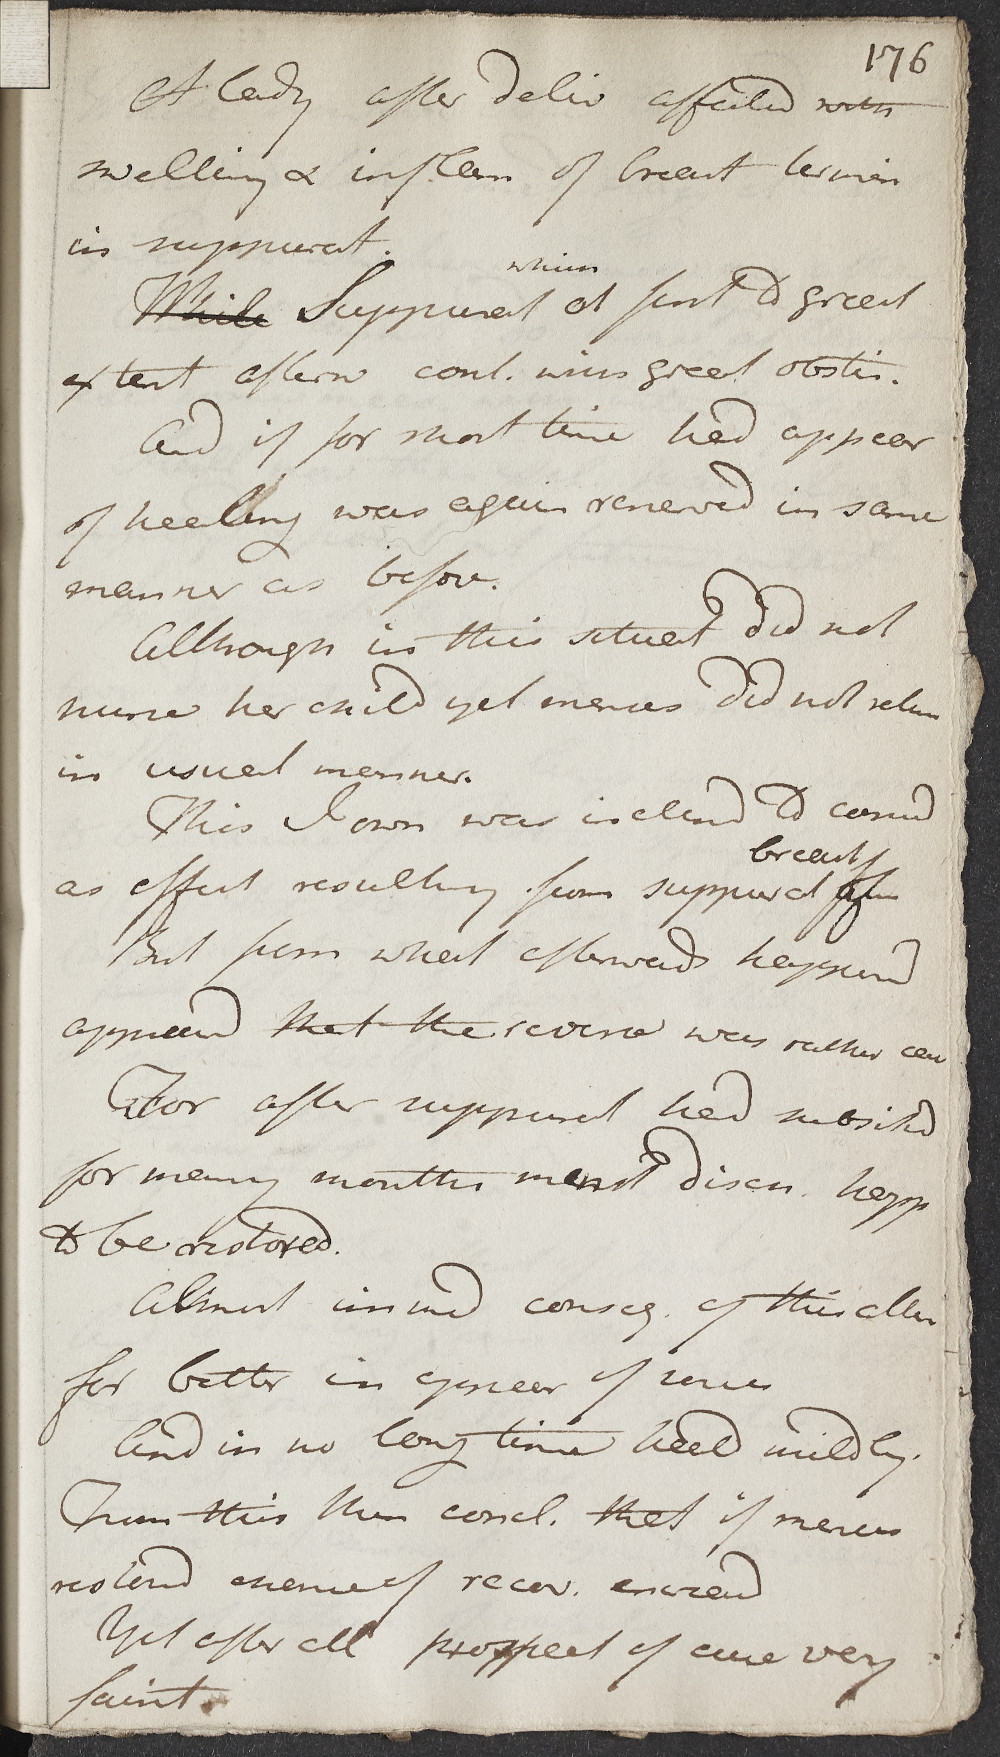 176
A lady after deliv affected with
swelling & inflam of breast termin
in suppurat.
which
While Suppurat at first to great
extent afterw cont. with great obstin.
And if for short time had appear
of healing was again renewed in same
manner as before.
Although in this situat did not
nurse her child yet menses did not return
in usual manner.
This I own was inclend to consid
breasts
as effect resulting from suppurat
But from what afterwards happend
appeard that the reverse was rather case
For after suppurat had subsisted
for many months menst disch. happ
to be restored.
Almost immed conseq. of this alter
for better in appear of sores
And in no long time heald mildly.
From this then concl. that if menses
restord chance of recov. encreasd
Yet after all prospect of cure very
faint.